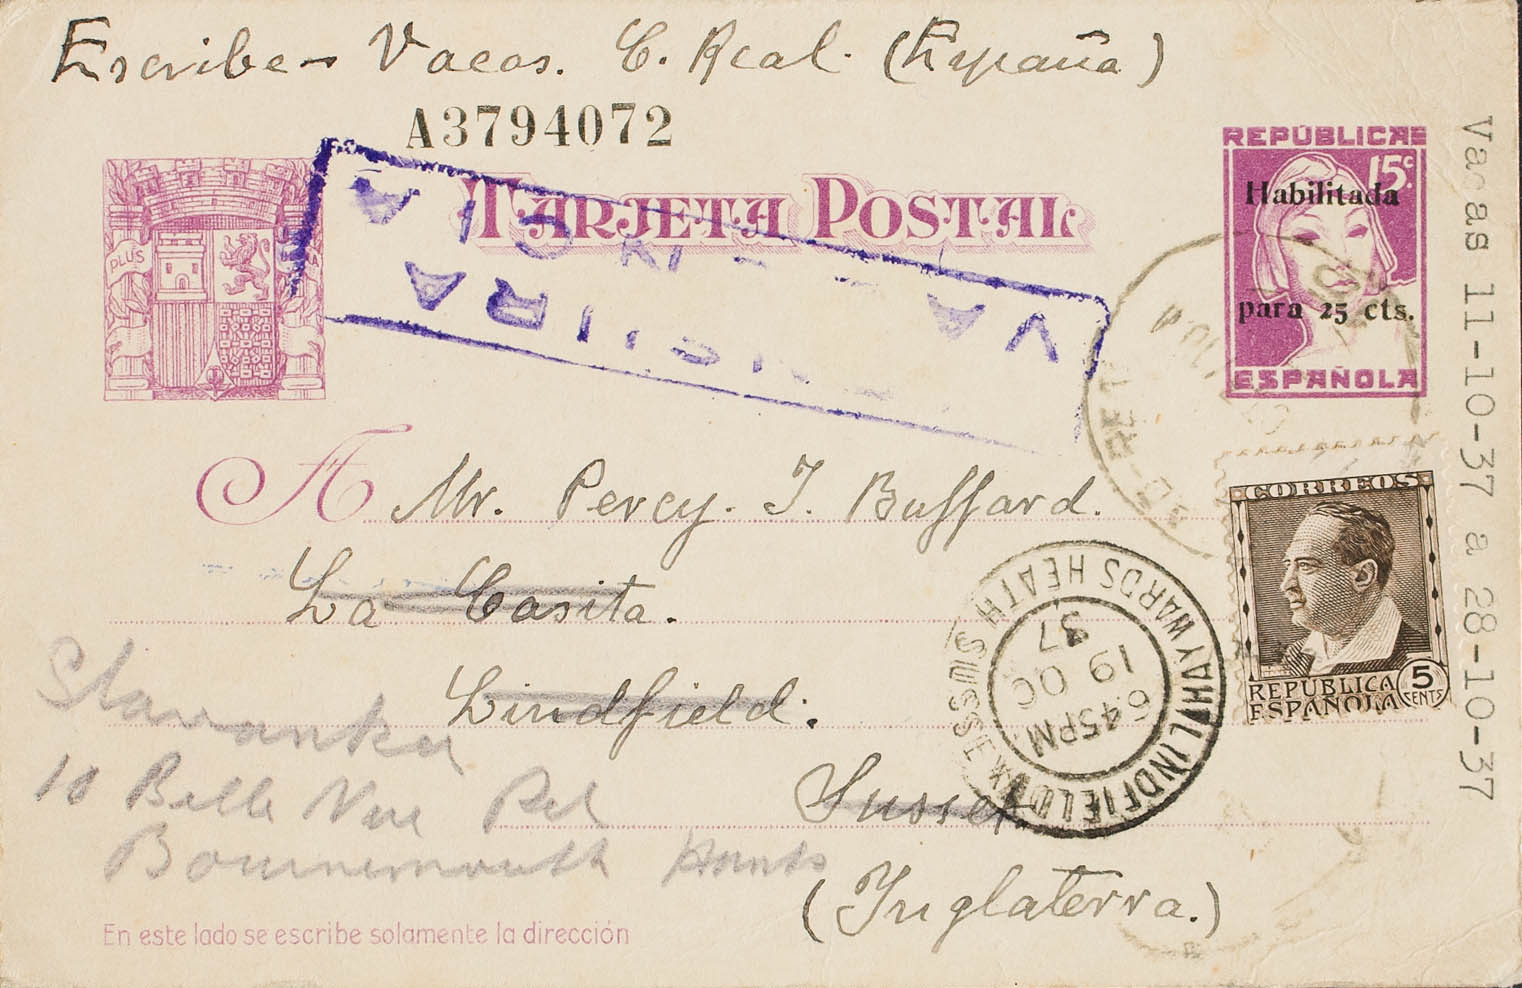 Escribe - Vacas. C. Real. (España)
A3794072
TARJETA POSTAL
PLUS
REPÚBLICA
15c.
Habilitada
para 25 cts.
ESPAÑOLA
CENSURA
A Mr. Percy. J. Buffard.
La Casita.
Lindfield.
Sussex
(Inglaterra.)
CORREOS
REPÚBLICA
ESPAÑOLA
5 CENTS
LINDFIELD HAYWARDS HEATH SUSSEX
6 45PM
19 OC
37
10 Belle Vue Rd
Bournemouth Hants
En este lado se escribe solamente la dirección
Vacas 11-10-37 a 28-10-37